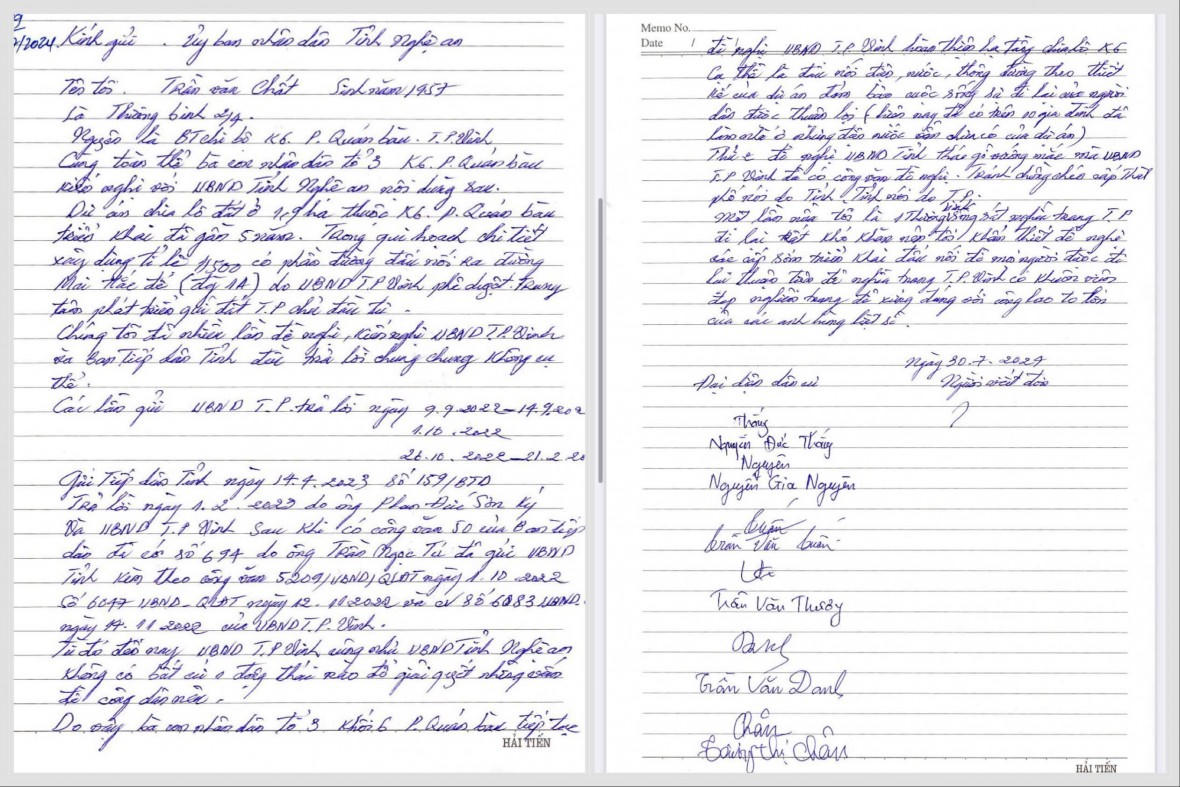 9
7/2024
Kính gửi . Ủy ban nhân dân Tỉnh Nghệ an
Tên tôi. Trần văn Chất Sinh năm 1957
Là Thương binh 2/4.
Nguyên là BT chi bộ K6. P. Quán bàu. T.P Vinh.
Cùng toàn thể bà con nhân dân tổ 3 K6. P. Quán bàu
kiến nghị với UBND Tỉnh Nghệ an nội dung sau.
Dự án chia lô đất ở 1,9 ha thuộc K6. P. Quán bàu
triển khai đã gần 5 năm. Trong qui hoạch chi tiết
xây dựng tỉ lệ 1/500 có phần đường đấu nối ra đường
Mai Hắc đế (đg 1A) do UBND T.P Vinh phê duyệt, trung
tâm phát triển quĩ đất T.P chủ đầu tư.
Chúng tôi đã nhiều lần đề nghị, kiến nghị UBND T.P. Vinh
và Ban tiếp dân Tỉnh đều trả lời chung chung không cụ
thể.
Các lần gửi UBND T.P. trả lời ngày 9.9.2022-14.9.202
1.10.2022
26.10.2022-21.2.20
Gửi Tiếp dân Tỉnh ngày 14.4.2023 số 159/BTD
Trả lời ngày 1.2.2023 do ông Phan Đức Sơn ký
Và UBND T.P Vinh sau khi có công văn 50 của Ban tiếp
dân đã có số 694 do ông Trần Ngọc Tú đã gửi UBND
Tỉnh kèm theo công văn 5209/UBND/QLĐT ngày 1.10.2022
Số 6047 UBND-QLĐT ngày 12.11.2022 và cv số 6083 UBND.
ngày 14.11.2022 của UBND T.P. Vinh.
Từ đó đến nay UBND T.P Vinh cũng như UBND Tỉnh Nghệ an
không có bất cứ 1 động thái nào để giải quyết những vấn
đề công dân nêu.
Do vậy bà con nhân dân tổ 3 khối 6 P. Quán bàu tiếp tục
HẢI TIẾN
Memo No.
Date /
đề nghị UBND T.P Vinh hoàn thiện hạ tầng chia lô K6
Cụ thể là đấu nối điện, nước, thông đường theo thiết
kế của dự án đảm bảo cuộc sống và đi lại của người
dân được thuận lợi (hiện nay đã có trên 10 gia đình đã
làm nhà ở nhưng điện nước vẫn chưa có của dự án)
Thứ 2 đề nghị UBND Tỉnh tháo gỡ vướng mắc mà UBND
T.P Vinh đã có công văn đề nghị. Tránh chồng chéo cấp Thành
phố nói do Tỉnh, Tỉnh nói do T.P.
Một lần nữa tôi là 1 Thương binh sống sát nghĩa trang T.P
đi lại rất khó khăn nên tôi khẩn thiết đề nghị
các cấp sớm triển khai đấu nối để mọi người được đi
lại thuận tiện để nghĩa trang T.P. Vinh có khuôn viên
đẹp nghiêm trang để xứng đáng với công lao to lớn
của các anh hùng liệt sĩ.
Ngày 30.7.2024
Đại diện dân cư Người viết đơn
Thắng
Nguyễn Đức Thắng
Nguyên
Nguyễn Gia Nguyên
Trần Văn
Trần Văn
Danh
Trần Văn Danh
Chân
Thị Chân
HẢI TIẾN